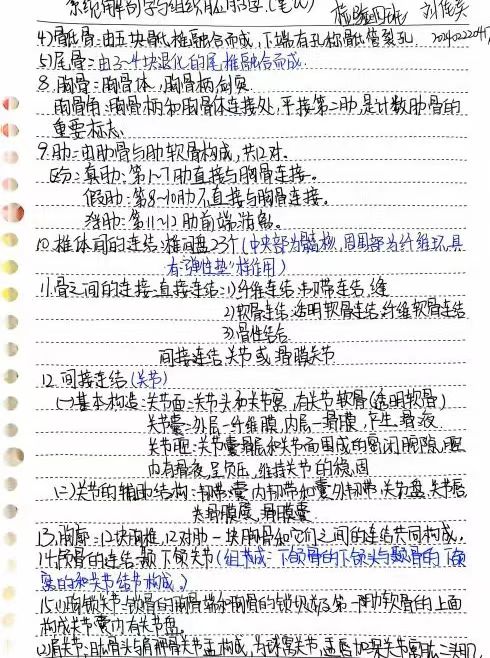 系统解剖学与组织胚胎学(笔记) 检验四班 刘
4)骶骨:由五块骶椎融合而成,下端有孔称骶管裂孔
5)尾骨:由3~4块退化的尾椎融合而成.
8.胸骨:胸骨体,胸骨柄,剑突.
胸骨角:胸骨柄和胸骨体连接处,平接第二肋,是计数肋骨的
重要标志.
9.肋:由肋骨与肋软骨构成,共12对.
区分:真肋:第1~7肋直接与胸骨连接。
假肋:第8~10肋不直接与胸骨连接。
第11~12肋前端游离。
10.椎体间的连结:椎间盘23个(中央部为髓核,周围部为纤维环,具
有"弹性垫"样作用)
11.骨之间的连接:直接连结:1)纤维连结:韧带连结,缝
2)软骨连结:透明软骨连结,纤维软骨连结
3)骨性结合
间接连结:关节或滑膜关节
12.间接连结(关节)
(一)基本构造:关节面:关节头和关节窝,有关节软骨(透明软骨)
关节囊:外层-纤维膜,内层-滑膜,产生滑液
关节腔:关节囊滑膜层和关节面围成的密闭腔隙,腔
内有滑液,呈负压,维持关节的稳固
(二)关节的辅助结构:韧带:囊内韧带和囊外韧带,关节盘,关节唇,
滑膜襞,滑膜囊
13.胸廓:12块胸椎,12对肋,一块胸骨和它们之间的连结共同构成.
14.颅骨的连结:颞下颌关节(组成:下颌骨的下颌头与颞骨的下颌
窝的和关节结节构成。)
15.(1)胸锁关节:锁骨的胸骨端和胸骨的锁切迹及第一肋软骨的上面
构成,关节囊内有关节盘.
(2)肩关节:肱骨头与肩胛骨关节盂构成,为球窝关节,